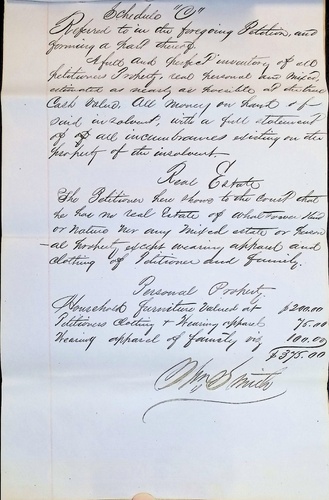 Schedule "C"
Referred to in the foregoing Petition, and
forming a part thereof.
A full and perfect inventory of all
petitioners Property, real personal and mixed,
estimated as nearly as possible at its true
Cash value. All money on hand of
said insolvent, with a full statement
of of all incumbrances existing on the
property of the insolvent.
Real Estate
The Petitioner here shows to the Court that
he has no real Estate of whatsoever kind
or nature nor any mixed estate or Person
al Property except wearing apparel and
clothing of Petitioner and family.
Personal Property
Household furniture valued at $200.00
Petitioners Clothing & Wearing apparel 75.00
Wearing apparel of family viz 100.00
$375.00
Smith